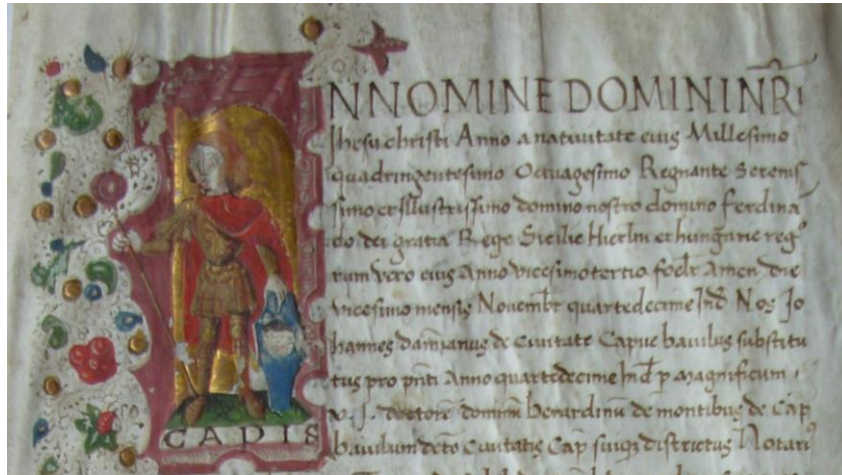 NNOMINE DOMINI NR̄I
Jhesu christi Anno a natiuitate eius Millesimo
quadringentesimo Octuagesimo Regnante Serenis
simo et Illustrissimo domino nostro domino ferdina
do dei gratia Rege Sicilie Hierlm et hungarie reg
rum vero eius Anno vicesimotertio foelr Amen die
vicesimo mensis Nouembr quartedecime Ind Nos Jo
hannes damianus de ciuitate Capue baiulus substitu
tus pro pnti Anno quartedecime Ind p magnificum
v. J. doctore dominu berardinu de montibus de Cap
baiulum dcte Ciuitatis Cap suiq districtus Notari
CADIS